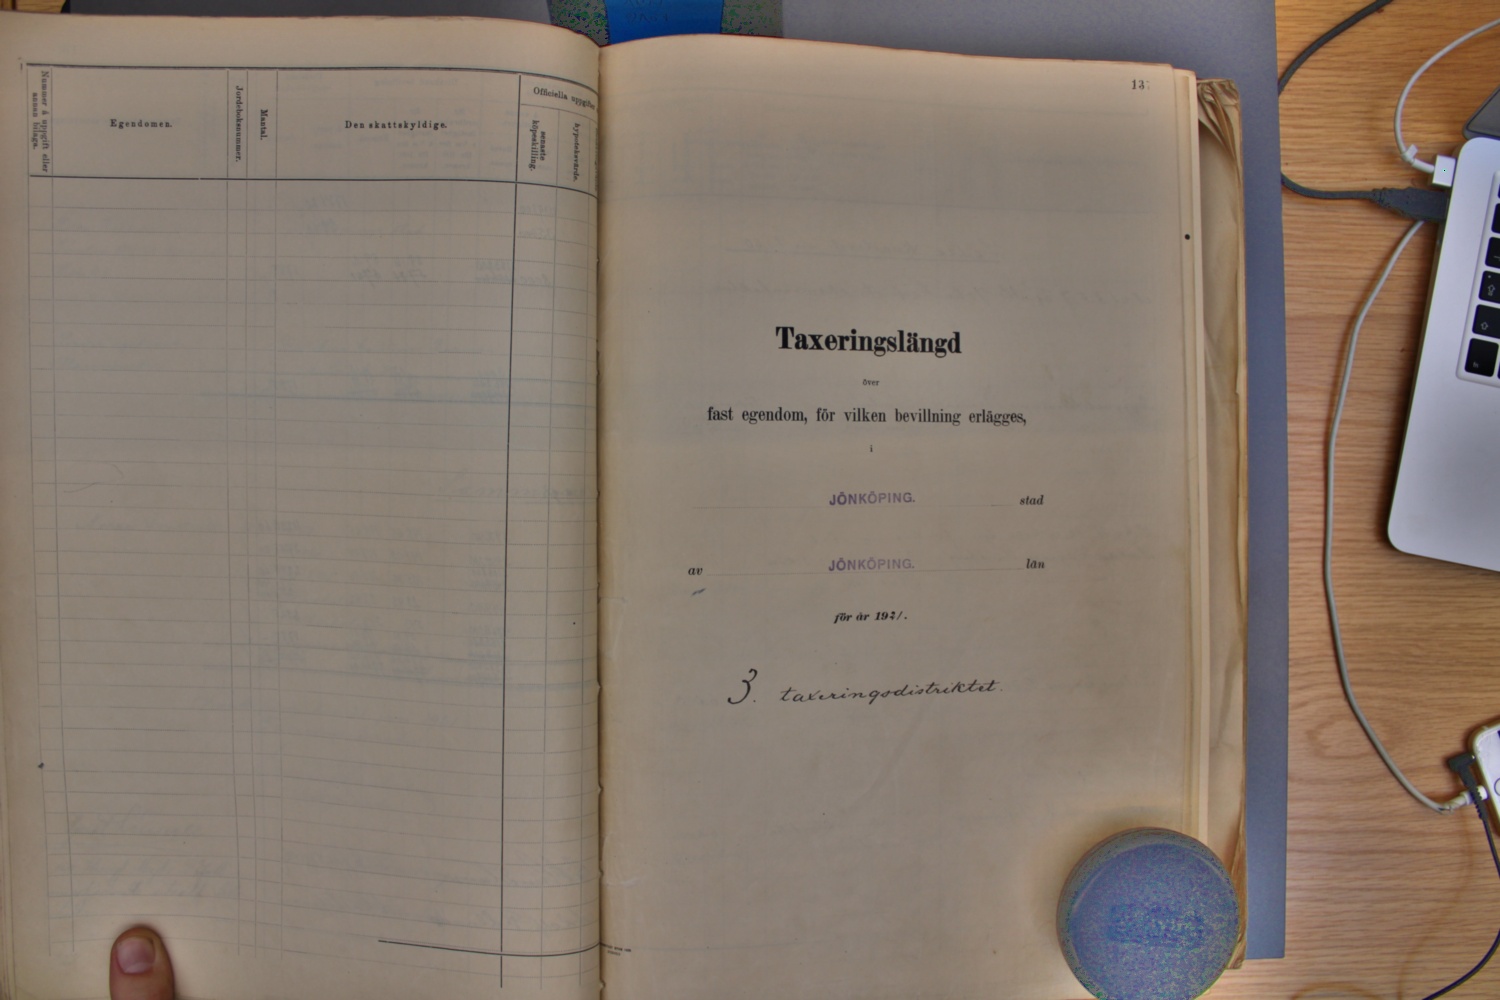 Nummer å uppgift eller
annan bilaga.
Egendomen.
Jordeboksnummer.
Mantal.
Den skattskyldige.
Officiella uppgifter
senaste
köpeskilling.
hypoteksvärde.
13
Taxeringslängd
över
fast egendom, för vilken bevillning erlägges,
i
JÖNKÖPING. stad
av JÖNKÖPING. län
för år 1921.
3. taxeringsdistriktet.